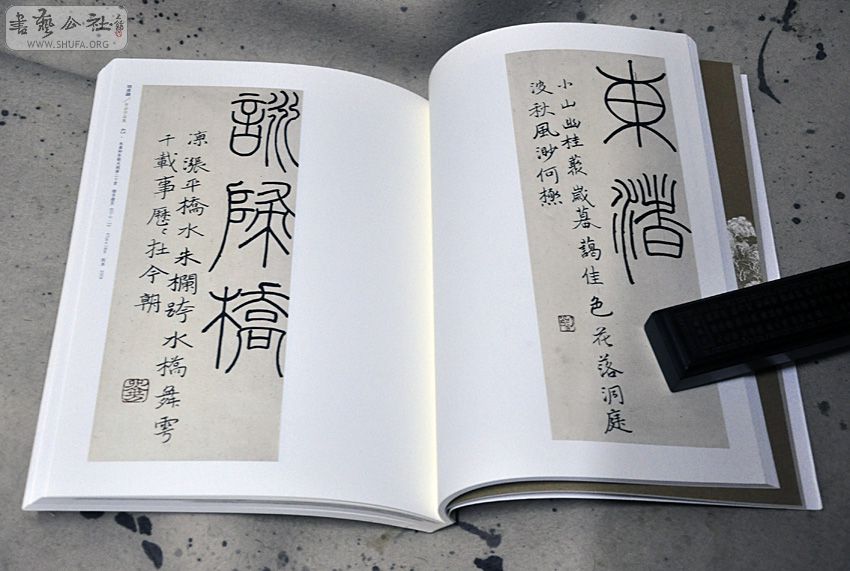 書藝公社
WWW.SHUFA.ORG
東渚
小山幽桂叢歲暮藹佳色花落洞庭
波秋風渺何極
詠歸橋
凉漲平橋水朱欄跨水橋舞雩
千載事歷〻在今朝